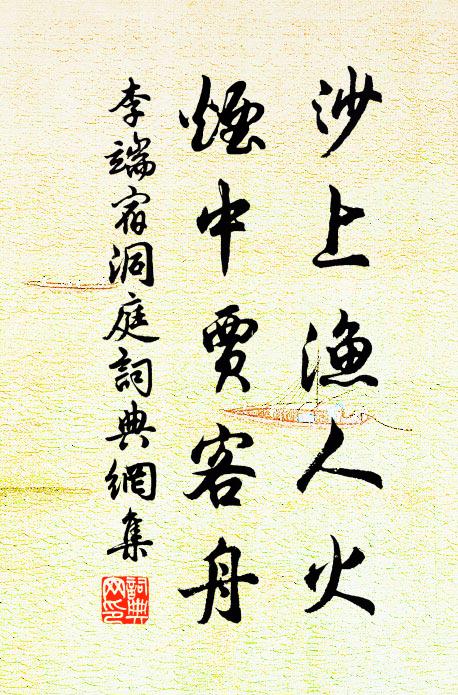 沙上漁人火
煙中賈客舟
李端宿洞庭詞典網集
詞典
网印